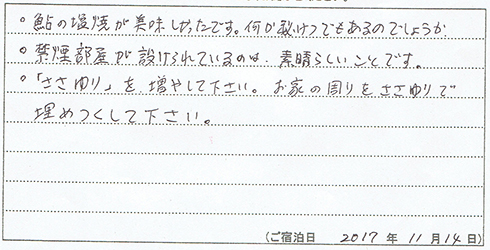 。鮎の塩焼が美味しかったです。何か秘けつでもあるのでしょうか
。禁煙部屋が設けられているのは、素晴らしいことです。
。「ささゆり」を増やして下さい。お家の周りをささゆりで
埋めつくして下さい。
(ご宿泊日 2017年 11月14日)